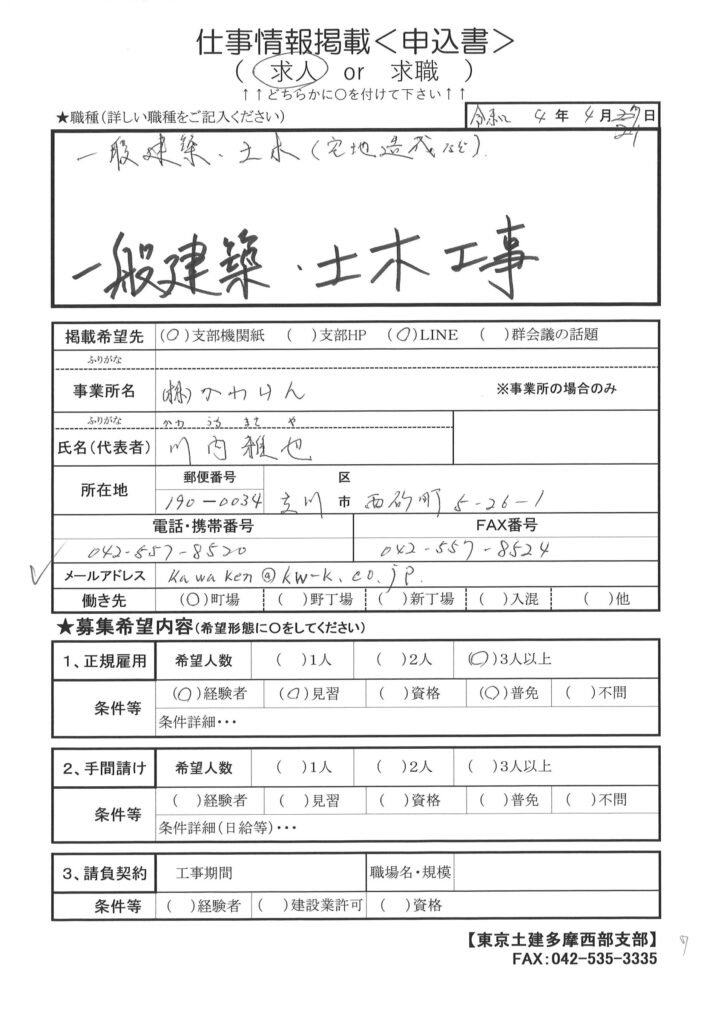 仕事情報掲載<申込書>
( 求人 or 求職 )
↑↑どちらかに○を付けて下さい↑↑
★職種(詳しい職種をご記入ください)
令和 4 年 4 月 日
一般建築・土木(宅地造成など).
一般建築・土木工事
掲載希望先 (○)支部機関紙 ( )支部HP (○)LINE ( )群会議の話題
ふりがな
事業所名 (株)かわけん ※事業所の場合のみ
ふりがな かわ うち まさ や
氏名(代表者) 川内雅也
所在地 郵便番号 区
190-0034 立川 市 西砂町 5-26-1
電話・携帯番号 FAX番号
042-557-8520 042-557-8524
メールアドレス kawaken@kw-k.co.jp.
働き先 (○)町場 ( )野丁場 ( )新丁場 ( )入混 ( )他
★募集希望内容(希望形態に○をしてください)
1、正規雇用 希望人数 ( )1人 ( )2人 (○)3人以上
条件等 (○)経験者 (○)見習 ( )資格 (○)普免 ( )不問
条件詳細・・・
2、手間請け 希望人数 ( )1人 ( )2人 ( )3人以上
条件等 ( )経験者 ( )見習 ( )資格 ( )普免 ( )不問
条件詳細(日給等)・・・
3、請負契約 工事期間 職場名・規模
条件等 ( )経験者 ( )建設業許可 ( )資格
【東京土建多摩西部支部】
FAX:042-535-3335